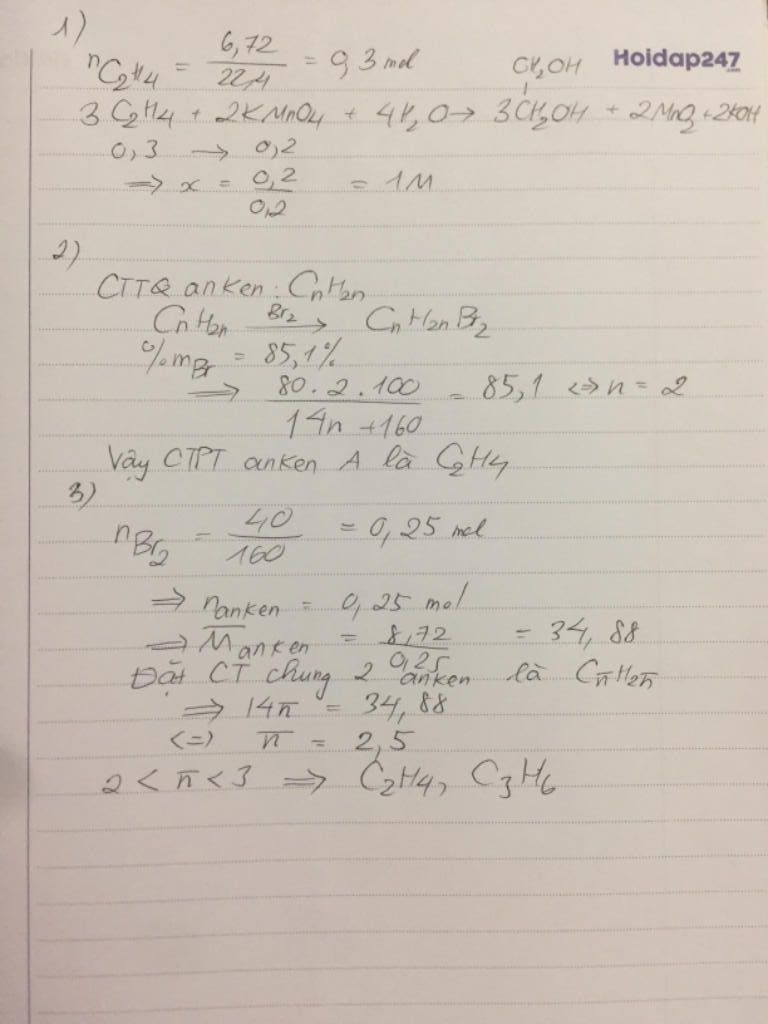 1)
nC2H4 = 6,72/22,4 = 0,3 mol
Hoidap247
CH2OH
3C2H4 + 2KMnO4 + 4H2O → 3CH2OH + 2MnO2 + 2KOH
0,3 → 0,2
⇒ x = 0,2/0,2 = 1M
2)
CTTQ anken : CnH2n
CnH2n Br2→ CnH2nBr2
%mBr = 85,1%
⇒ 80.2.100/14n+160 = 85,1 ⇔ n = 2
Vậy CTPT anken A là C2H4
3)
nBr2 = 40/160 = 0,25 mol
⇒ nanken = 0,25 mol
⇒ M̅anken = 8,72/0,25 = 34,88
Đặt CT chung 2 anken là Cn̅H2n̅
⇒ 14n̅ = 34,88
<=> n̅ = 2,5
2 < n̅ < 3 ⇒ C2H4, C3H6